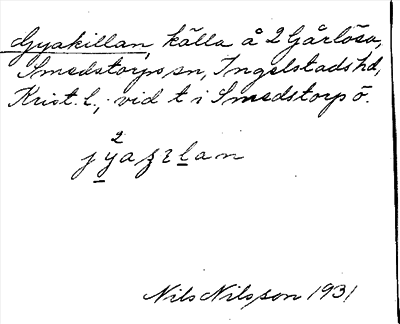 Gyakillan, källa å 2 Gårlösa,
Smedstorps sn, Ingelstads hd,
Krist. l., vid t i Smedstorp ö.
Nils Nilsson 1931